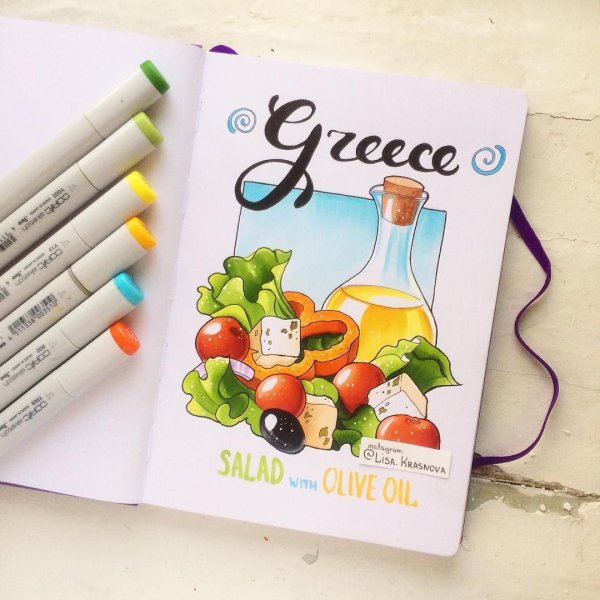 Greece
instagram
@Lisa.Krasnova
SALAD WITH OLIVE OIL
COPIC sketch
COPIC sketch
COPIC sketch
COPIC sketch
COPIC sketch